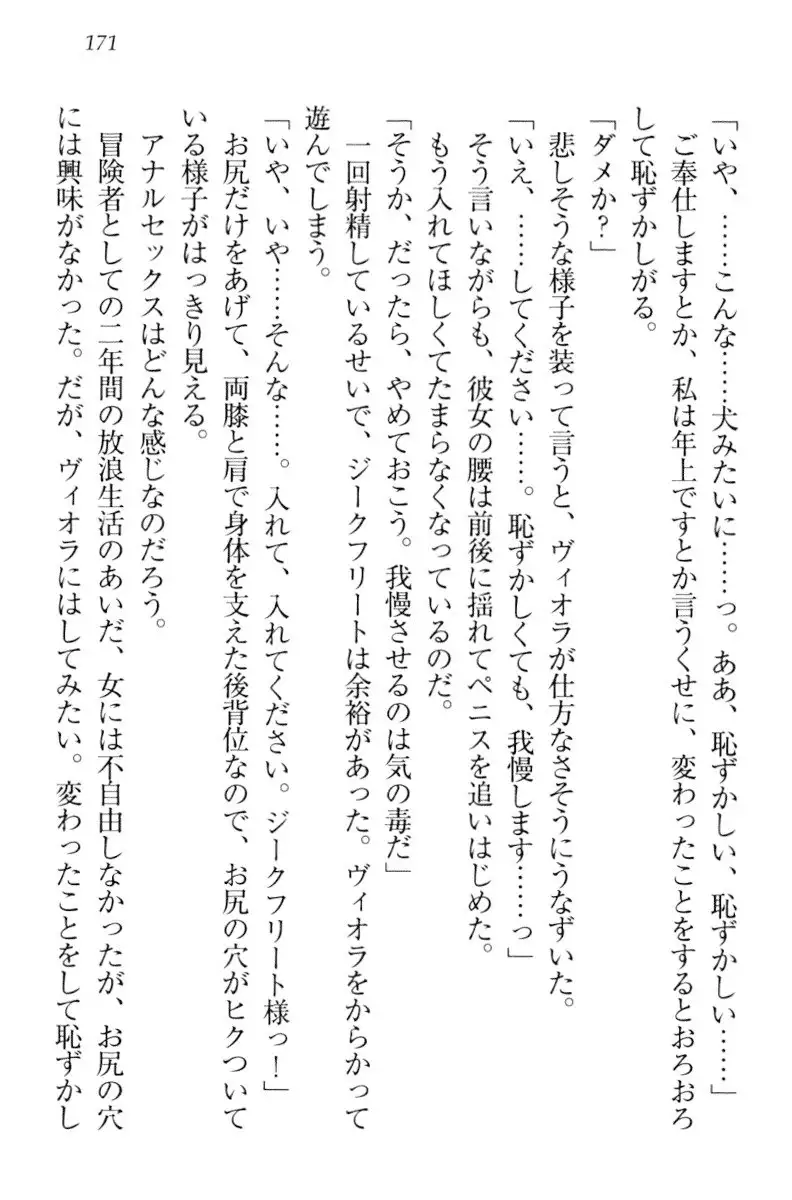 171
「いや、……こんな……犬みたいに……っ。ああ、恥ずかしい、恥ずかしい……」
ご奉仕しますとか、私は年上ですとか言うくせに、変わったことをするとおろおろ
して恥ずかしがる。
「ダメか？」
悲しそうな様子を装って言うと、ヴィオラが仕方なさそうにうなずいた。
「いえ、……してください……。恥ずかしくても、我慢します……っ」
そう言いながらも、彼女の腰は前後に揺れてペニスを追いはじめた。
もう入れてほしくてたまらなくなっているのだ。
「そうか、だったら、やめておこう。我慢させるのは気の毒だ」
一回射精しているせいで、ジークフリートは余裕があった。ヴィオラをからかって
遊んでしまう。
「いや、いや……そんな……。入れて、入れてください。ジークフリート様っ！」
お尻だけをあげて、両膝と肩で身体を支えた後背位なので、お尻の穴がヒクついて
いる様子がはっきり見える。
アナルセックスはどんな感じなのだろう。
冒険者としての二年間の放浪生活のあいだ、女には不自由しなかったが、お尻の穴
には興味がなかった。だが、ヴィオラにはしてみたい。変わったことをして恥ずかし